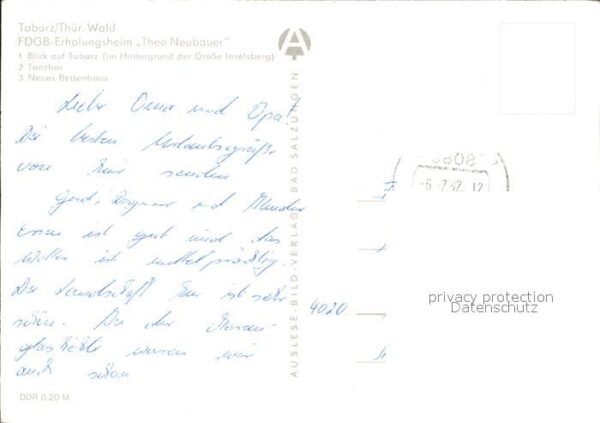 Tabarz/Thür. Wald
FDGB-Erholungsheim „Theo Neubauer"
1 Blick auf Tabarz (im Hintergrund der Große Inselsberg)
2 Tanzbar
3 Neues Bettenhaus
Liebe Oma und Opa!
Die besten Urlaubsgrüße
von hier senden
Gerd, Dagmar und
Essen ist gut und das
Wetter ist mittelprächtig.
Die Landschaft hier ist sehr
schön. In der Marien-
glashöhle waren wir
auch schon
DDR 0,20 M
AUSLESE-BILD-VERLAG BAD SALZUNGEN
4020
-6.-7.82.12
privacy protection
Datenschutz